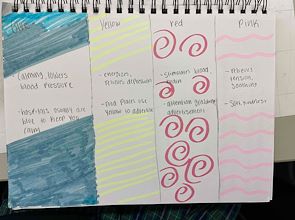 Blue
Calming, lowers
blood pressure
- hospitals usually are
blue to keep you
calm
Yellow
- energizes,
relieves depression
- food places use
Yellow to advertise
red
- stimulate blood,
- attention grabbing
advertisement
Pink
- relieves
tension,
soothing
- Soft,